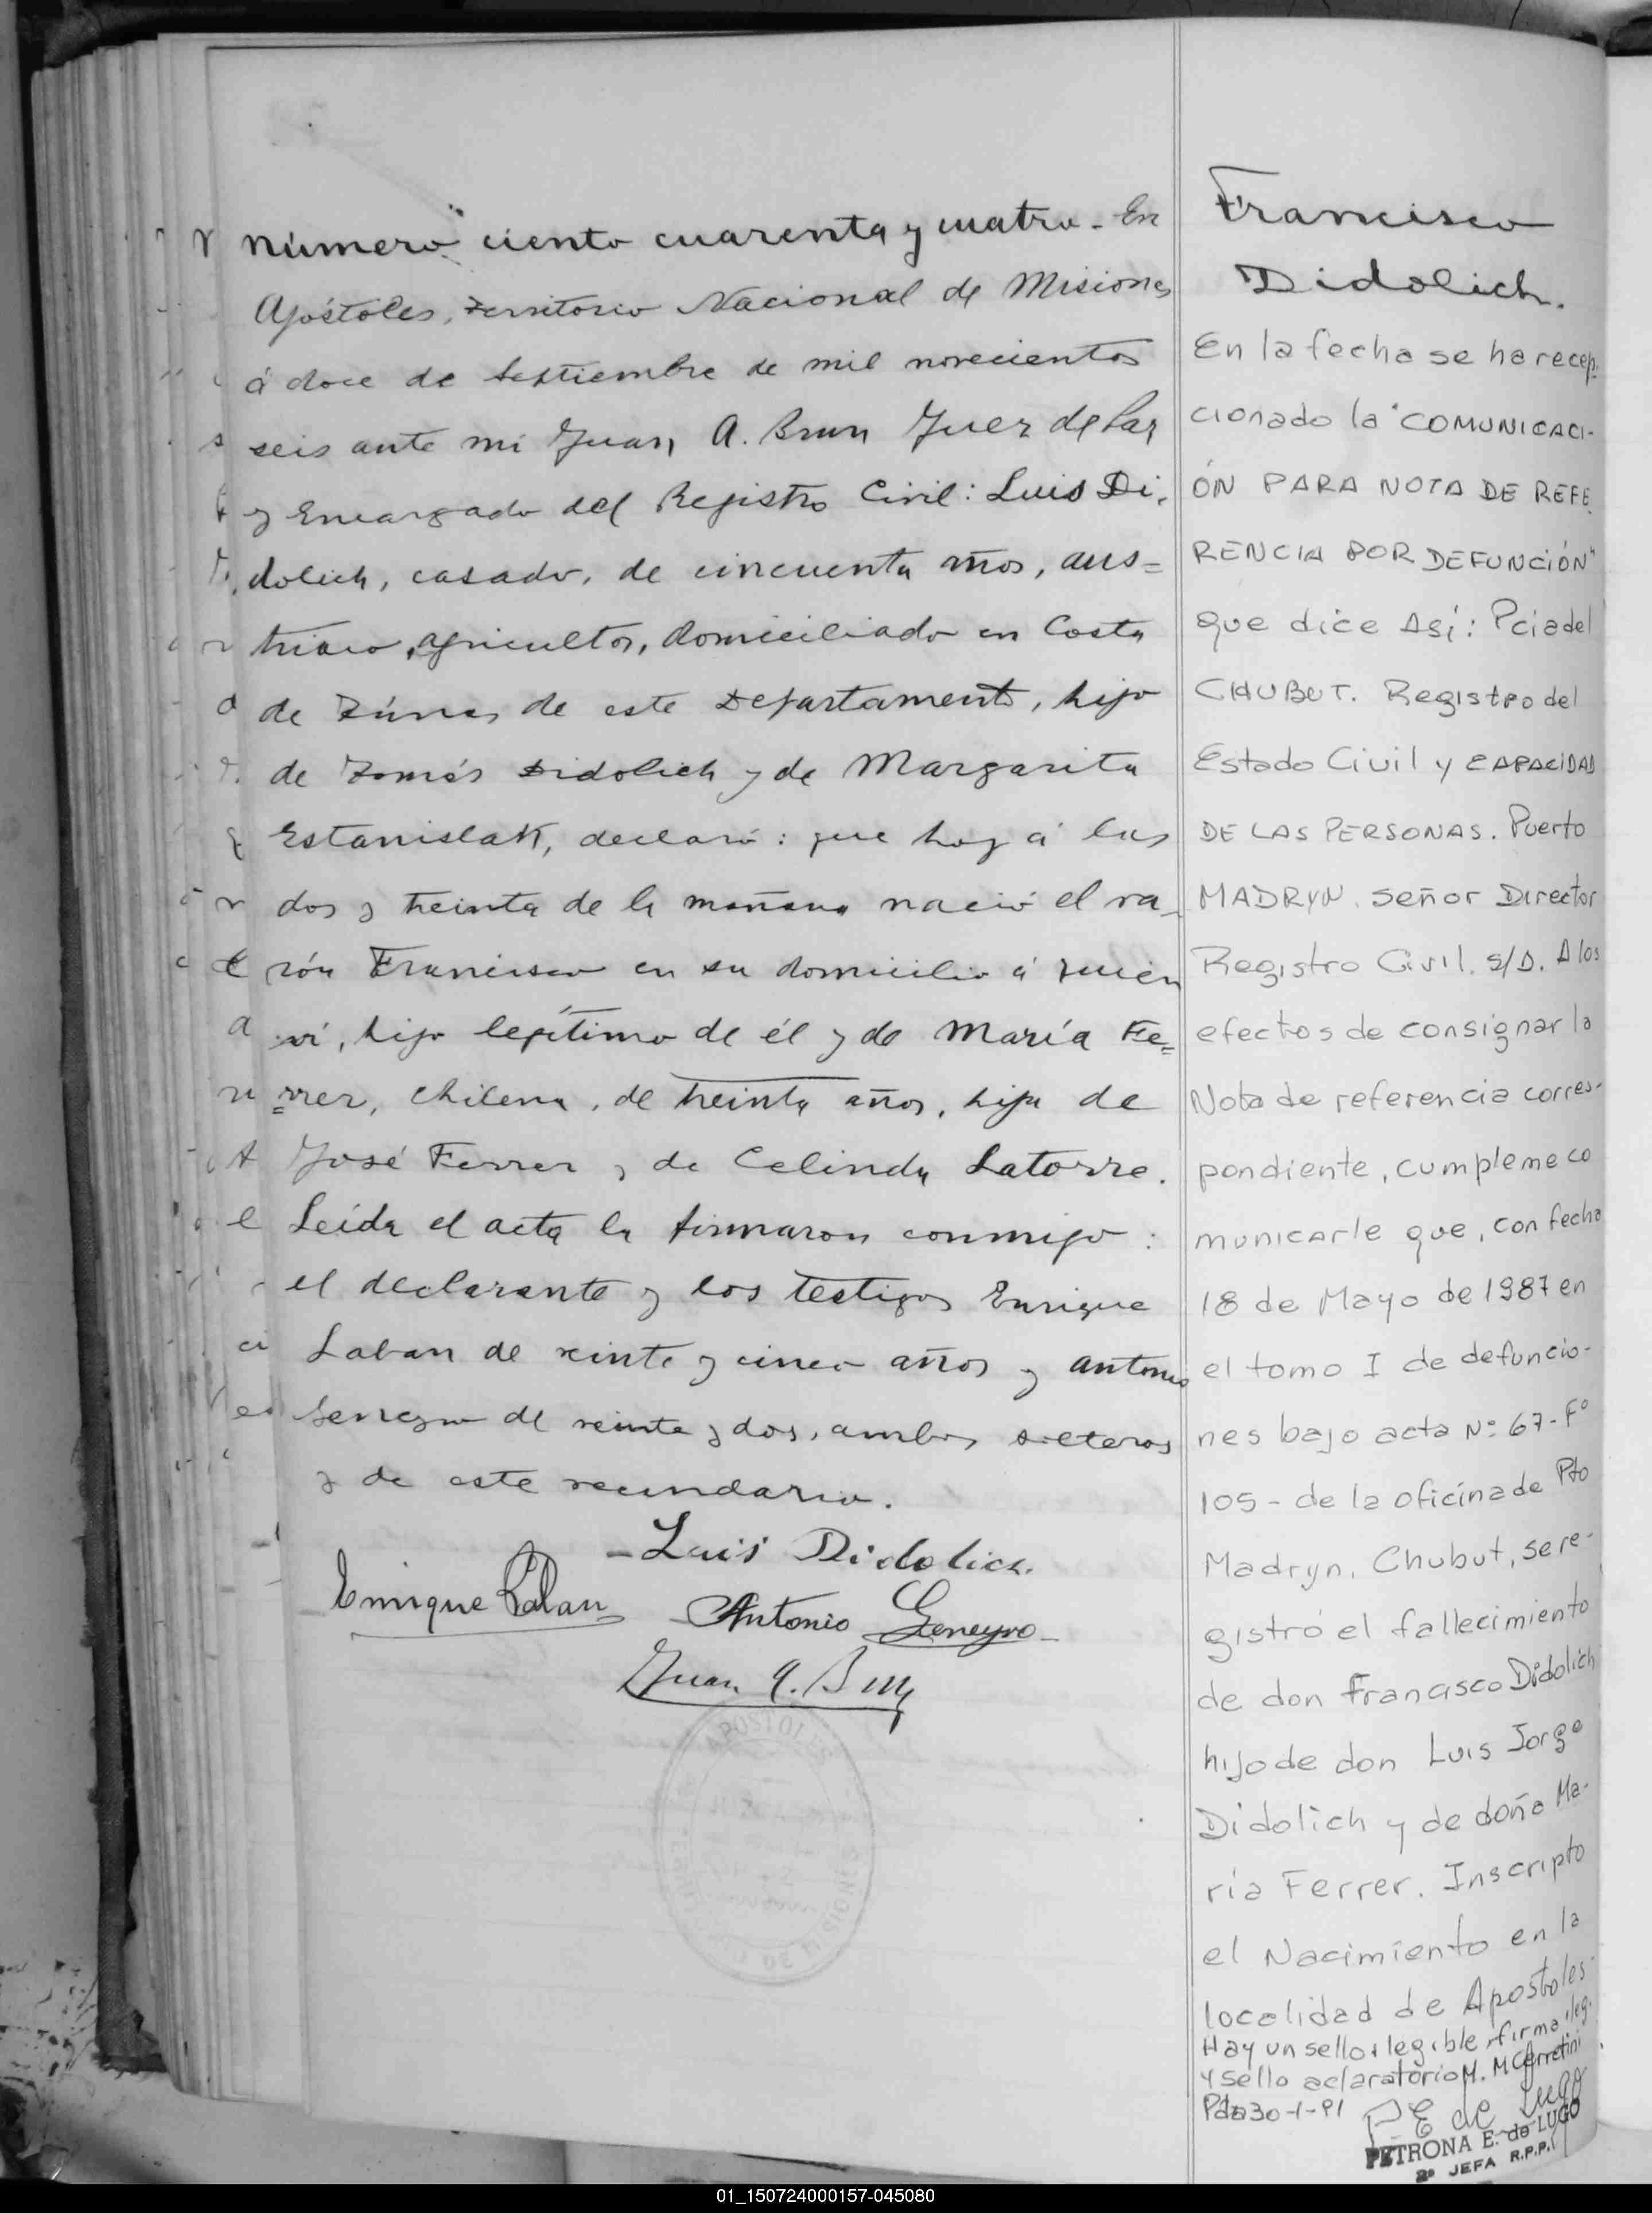 Número ciento cuarenta y cuatro - En
Apóstoles, Territorio Nacional de Misiones
á doce de Septiembre de mil novecientos
seis ante mi Juan A. Brun Juez de Paz
y Encargado del Registro Civil: Luis Di-
dolich, casado, de cincuenta años, aus=
triaco, agricultor, domiciliado en Costa
de Túnas de este Departamento, hijo
de Tomás Didolich y de Margarita
Estanislak, declaró: que hoy á las
dos y treinta de la mañana nació el va-
rón Francisco en su domicilio á quien
ví, hijo legítimo de él y de María Fe=
=rrer, chilena, de treinta años, hija de
José Ferrer y de Celinda Latorre.
Leída el acta la firmaron conmigo:
el declarante y los testigos Enrique
Laban de veinte y cinco años y Antonio
de veinte y dos, ambos solteros
y de este vecindario.
- Luis Didolich.
Enrique Laban Antonio Geneyro
Juan A. Brun
Francisco
Didolich.
En la fecha se ha recep-
cionado la "COMUNICACI-
ÓN PARA NOTA DE REFE
RENCIA POR DEFUNCIÓN"
que dice Así: Pcia del
CHUBUT. Registro del
Estado Civil y CAPACIDAD
DE LAS PERSONAS. Puerto
MADRYN. Señor Director
Registro Civil. S/D. A los
efectos de consignar la
Nota de referencia corres-
pondiente, cumpleme co
municarle que, con fecha
18 de Mayo de 1987 en
el tomo I de defuncio-
nes bajo acta Nº: 67 - Fº
105 - de la oficina de Pto
Madryn, Chubut, se re-
gistró el fallecimiento
de don Francisco Didolich
hijo de don Luis Jorge
Didolich y de doña Ma-
ría Ferrer. Inscripto
el Nacimiento en la
localidad de Apostoles
Hay un sello ilegible, firma ileg.
y sello aclaratorio M. M Cerretini
Pdas 30-1-91
P E de Lugo
PETRONA E. de LUGO
2º JEFA R.P.P.
01_150724000157-045080